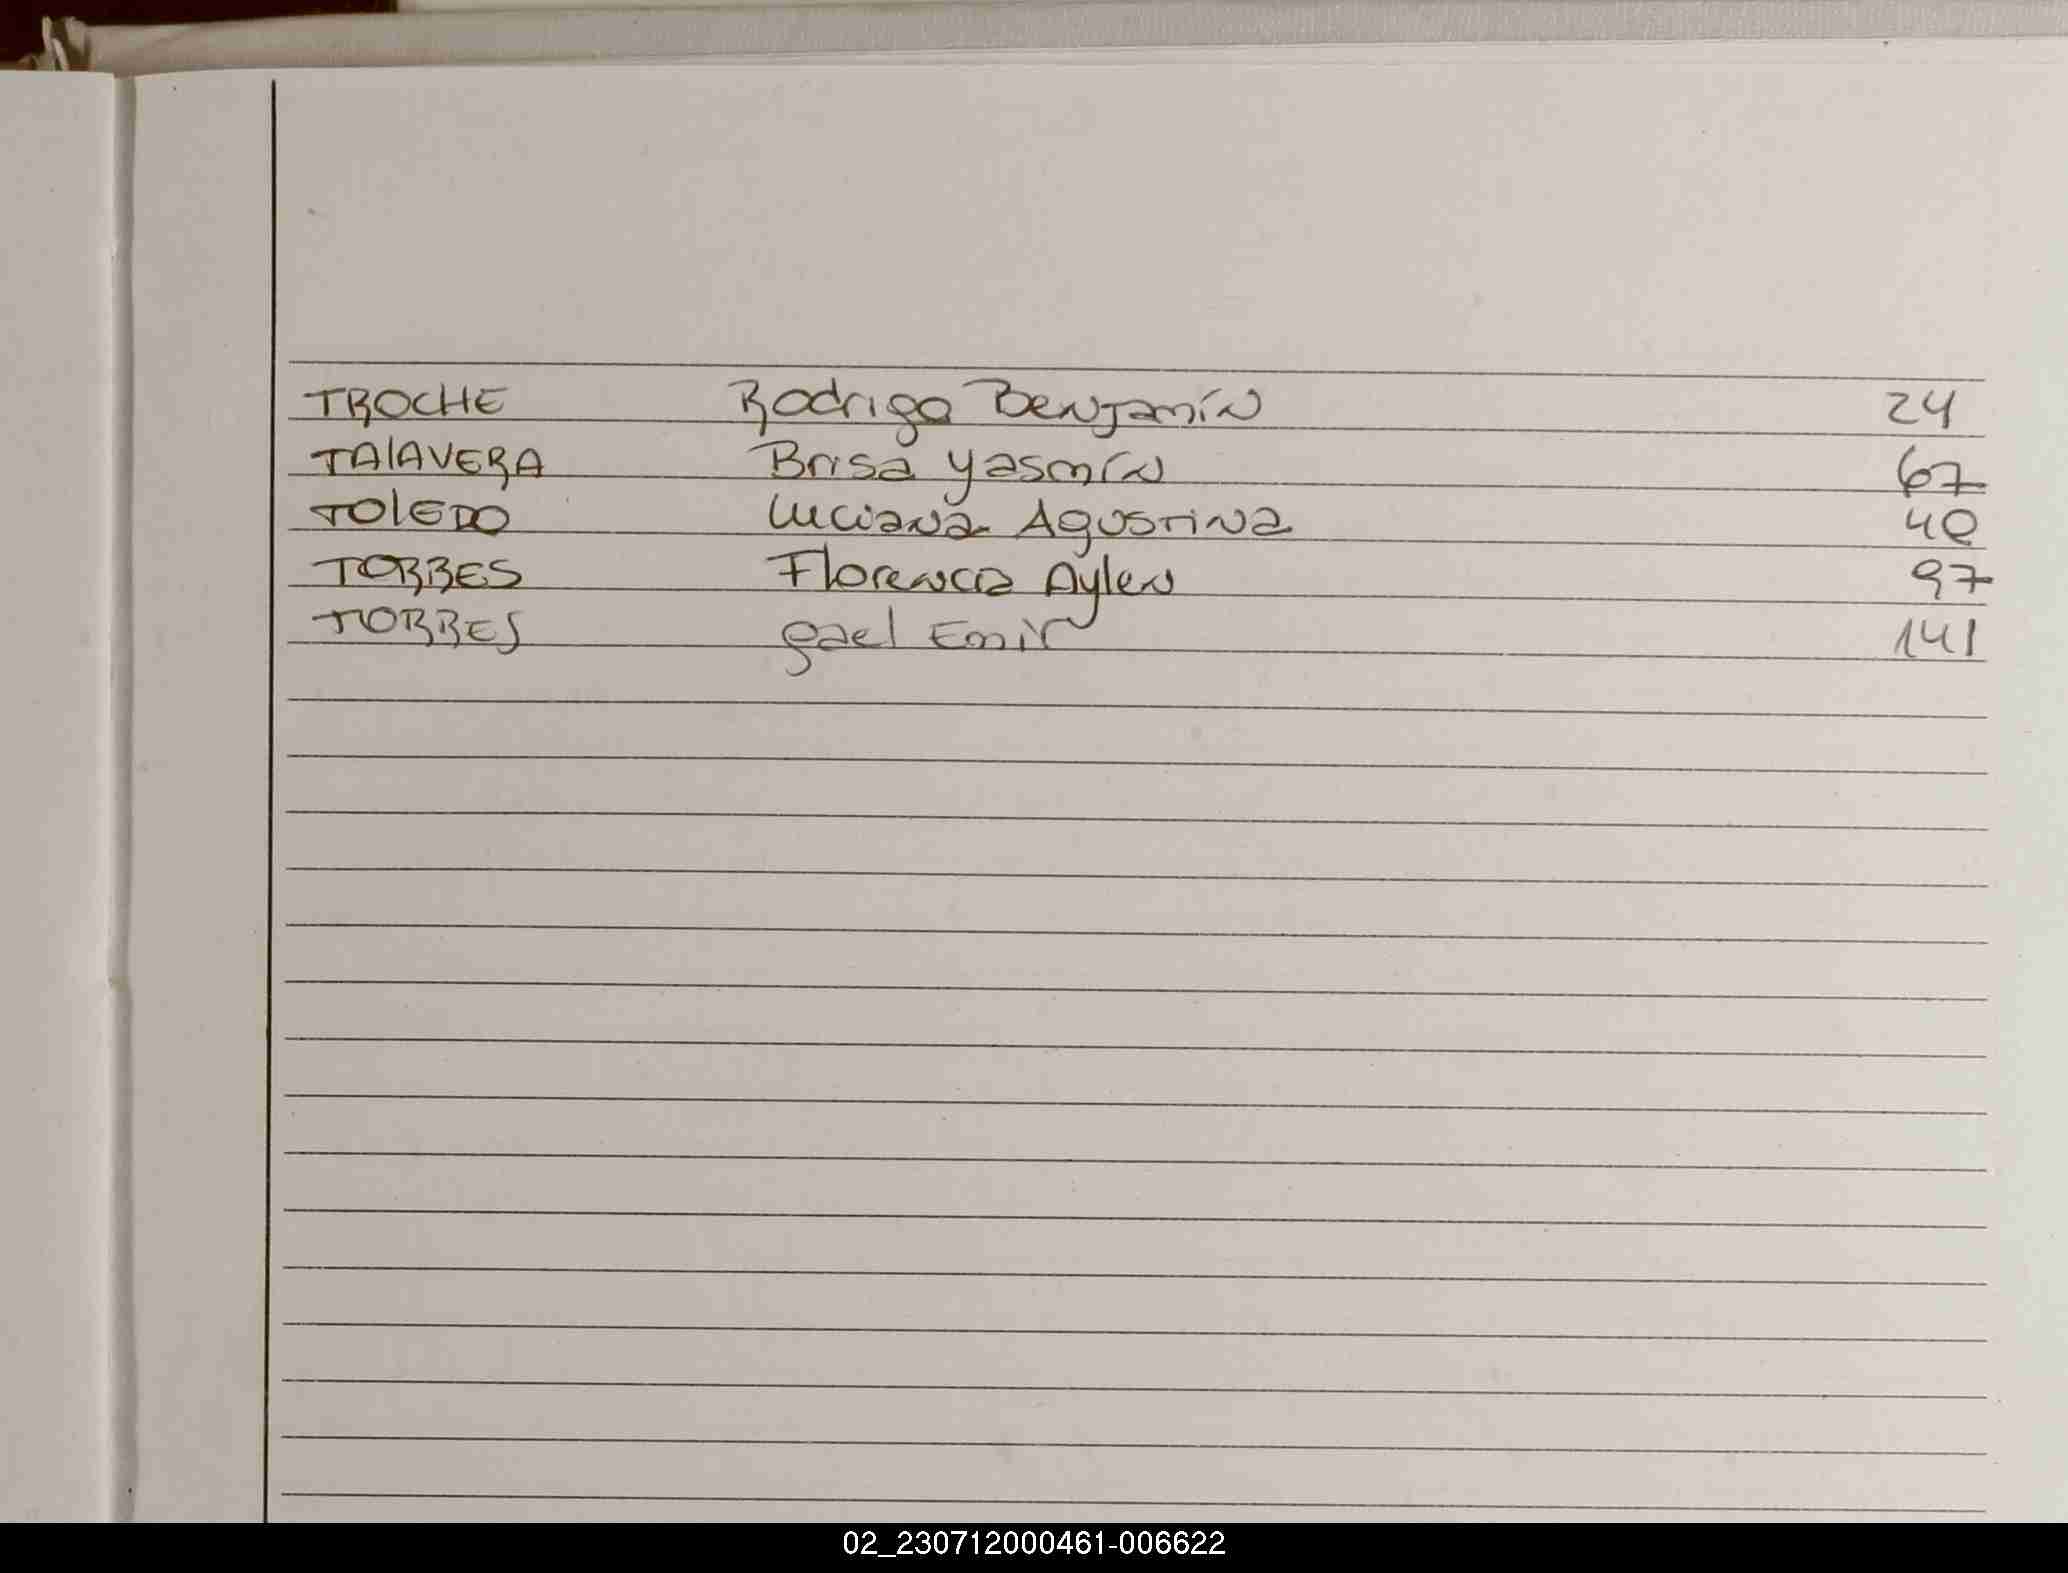 TROCHE Rodrigo Benjamín 24
TAlAVERA Brisa Yasmín 67
TOlEDO Luciana Agustina 40
TORRES Florencia Aylen 97
TORRES gael Emir 141
02_230712000461-006622